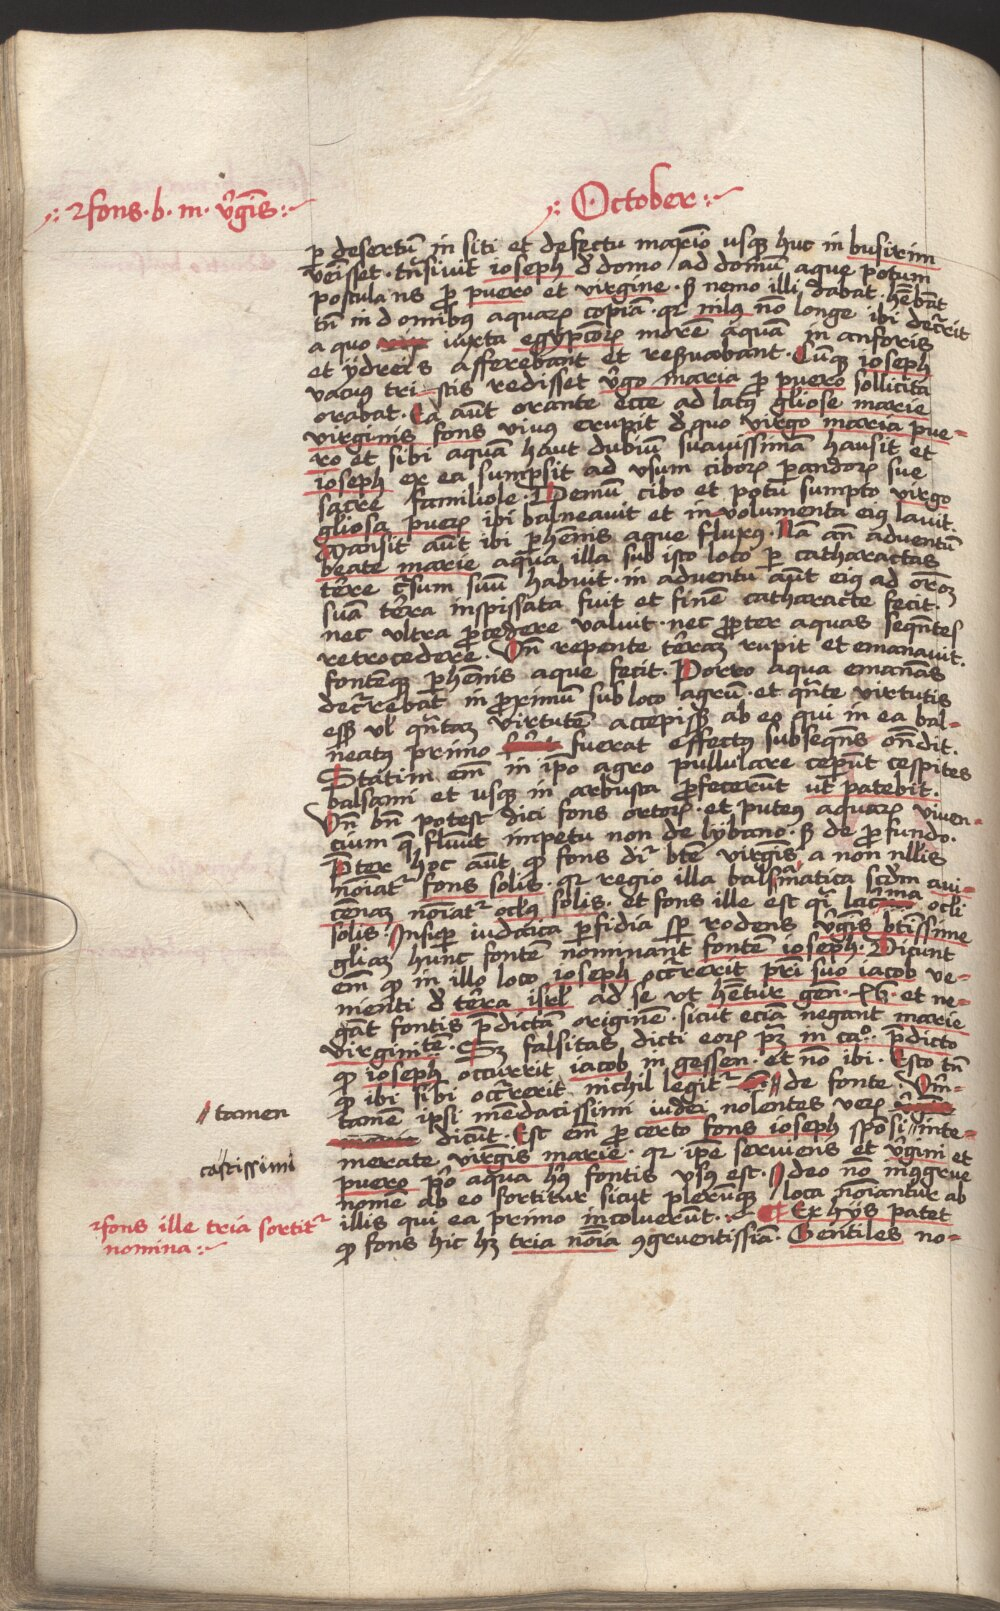 fons · b · m · v̄gīs
October
ꝑ desertū in siti et defectu maxīo usqȝ huc in busirim
venisset · trāsivit ioseph d̄ domo ad domū aque potum
postulans ꝓ puero et virgine · sȝ nemo illi dabat · hēbāt
tn̄ in domibꝰ aquarꝝ copiā · qr nilꝰ nō longe ibi decr̄rit
a quo iuxta egypcōrꝝ morē aquā in anforis
et ydreis afferebant et reẜuabant · Cūqȝ ioseph
vacuus tristis redisset v̄go maria ꝓ puero sollicita
orabat · Ea aūt orante ecce ad latꝰ gl̄iose marie
virginis fons vivꝰ erupit d̄ quo virgo maria pue-
ro et sibi aquā haut dubiū suavissimā hausit et
ioseph ex ea sumpsit ad usum ciborꝝ ꝑandorꝝ sue
sacre familiole · Demū cibo et potu sumpto virgo
gl̄iosa puerꝝ ibi balneavit et involumenta eiꝰ lavit ·
Mansit aūt ibi ꝑhēnis aque fluxꝰ · Nā añ adventū
beate marie aqua illa sub isto loco ꝑ catharactas
tēre cr̄sum suū habuit · in adventu aūt eiꝰ ad orōȝ
suā tērra inspissata fuit et finē catharacte fecit ·
nec ultra ꝓcedere valuit · nec ꝓpter aquas seqn̄tes
retrocedere · Vn̄ repente tērraȝ rupit et emanavit ·
fontēqȝ ꝑhēnis aque fecit · Porro aqua emanās
decr̄rebat in ꝓximū subloco agrū · et qn̄te virtutis
eẜȝ vl̄ qn̄taȝ virtutē accepiẜȝ ab eo qui in ea bal-
neatꝰ primo fuerat effectꝰ subseqn̄s on̄dit ·
Statim em̄ in ip̄o agro pullulare ceperūt cespites
balsami et usqȝ in arbusta ꝓfecerūt ut patebit ·
Vn̄ bn̄ potest dici fons ortorꝝ · et puteꝰ aquarꝝ viven-
cium q̄ fluūt impetu non de lybano · sȝ de ꝓfundo ·
P̄ter hoc aūt qꝫ fons dr̄ bt̄e virgis a non nllis
nōiatr̄ fons solis · qr regio illa balsamatica scd̄m avi-
cēnaȝ nōiatr̄ oclꝰ solis · et fons ille est q̄i lacrima ocli
solis · Insuꝑ iudaica ꝑfidia sꝑ rodens v̄gīs bt̄issime
gl̄iaȝ hunc fontē nominant fontē ioseph · Dicunt
em̄ qꝫ in illo loco ioseph occr̄rerit pr̄i suo iacob ve-
nienti d̄ tērra isrl̄ ad se ut hētur gen̄ · et ne-
gāt fontis p̄dictā originē · sicut eciā negant marie
virginitē · Sȝ falsitas dicti eorꝝ pȝ in caᵒ · p̄dicto
qꝫ ioseph occurrit iacob in gessen · et nō ibi · Esto tn̄
qꝫ ibi sibi occr̄rerit nichil legitr̄ de fonte ·
tamē ipsi mendacissimi iudei nolentes verꝝ
dicūt · Est em̄ ꝓ certo fons ioseph sposi inte-
merate virgis marie · qr ip̄e serviens et v̄gini et
puero pº aqua hꝰ fontis usꝰ est · Ideo nō incōgrue
nomē ab eo sortitur sicut plerūqȝ loca nōiantur ab
illis qui ea primo incoluerūt · Ex hijs patet
qꝫ fons hic hȝ tria nōīa ꝯgruentissiā · Gentiles no-
tamen
castissimi
fons ille tria sortitr̄
nomina